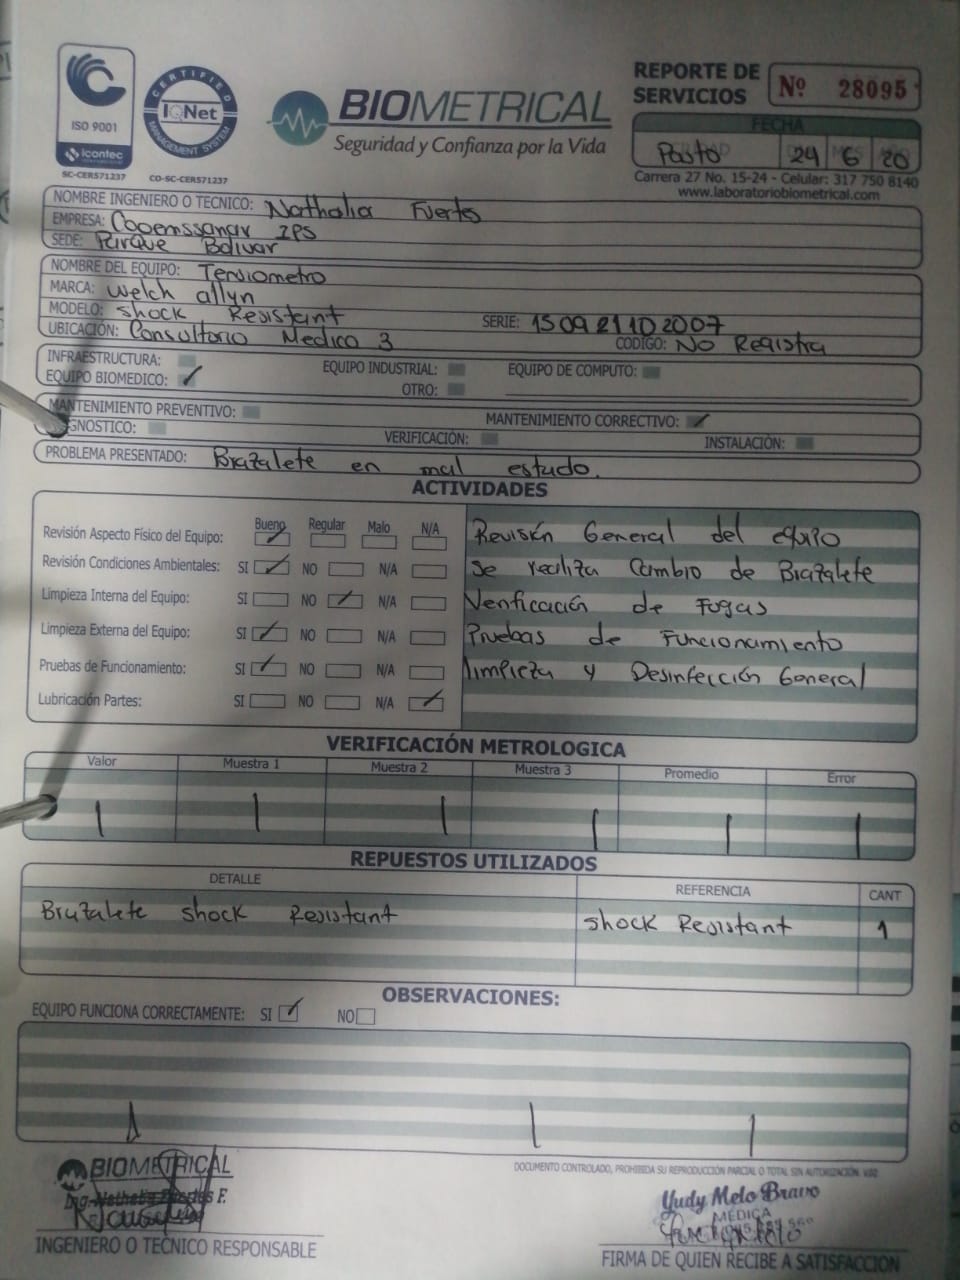 ISO 9001
icontec
SC-CER571237
CERTIFIED
IQNet
MANAGEMENT SYSTEM
CO-SC-CER571237
BIOMETRICAL
Seguridad y Confianza por la Vida
REPORTE DE SERVICIOS
Nº 28095
FECHA
Pasto 24 6 20
Carrera 27 No. 15-24 - Celular: 317 750 8140
www.laboratoriobiometrical.com
NOMBRE INGENIERO O TECNICO: Nathalia Fuertes
EMPRESA: Cooemssanar IPS
SEDE: Parque Bolivar
NOMBRE DEL EQUIPO: Tensiometro
MARCA: Welch allyn
MODELO: shock Resistant SERIE: 150921102007
UBICACIÓN: Consultorio Medico 3 CODIGO: No Registra
INFRAESTRUCTURA: EQUIPO INDUSTRIAL: EQUIPO DE COMPUTO:
EQUIPO BIOMEDICO: ✓ OTRO:
MANTENIMIENTO PREVENTIVO: MANTENIMIENTO CORRECTIVO: ✓
GNOSTICO: VERIFICACIÓN: INSTALACIÓN:
PROBLEMA PRESENTADO: Brazalete en mal estado.
ACTIVIDADES
Bueno Regular Malo N/A
Revisión Aspecto Físico del Equipo: ✓
Revisión Condiciones Ambientales: SI ✓ NO N/A
Limpieza Interna del Equipo: SI NO ✓ N/A
Limpieza Externa del Equipo: SI ✓ NO N/A
Pruebas de Funcionamiento: SI ✓ NO N/A
Lubricación Partes: SI NO N/A ✓
Revisión General del equipo
Se realiza Cambio de Brazalete
Verificación de Fugas
Pruebas de Funcionamiento
limpieza y Desinfección General
VERIFICACIÓN METROLOGICA
Valor Muestra 1 Muestra 2 Muestra 3 Promedio Error
REPUESTOS UTILIZADOS
DETALLE REFERENCIA CANT
Brazalete shock Resistant shock Resistant 1
OBSERVACIONES:
EQUIPO FUNCIONA CORRECTAMENTE: SI ✓ NO
DOCUMENTO CONTROLADO, PROHIBIDA SU REPRODUCCIÓN PARCIAL O TOTAL SIN AUTORIZACIÓN. V.02
BIOMETRICAL
Ing.
INGENIERO O TECNICO RESPONSABLE
Yudy Melo Bravo
MÉDICA
FIRMA DE QUIEN RECIBE A SATISFACCION